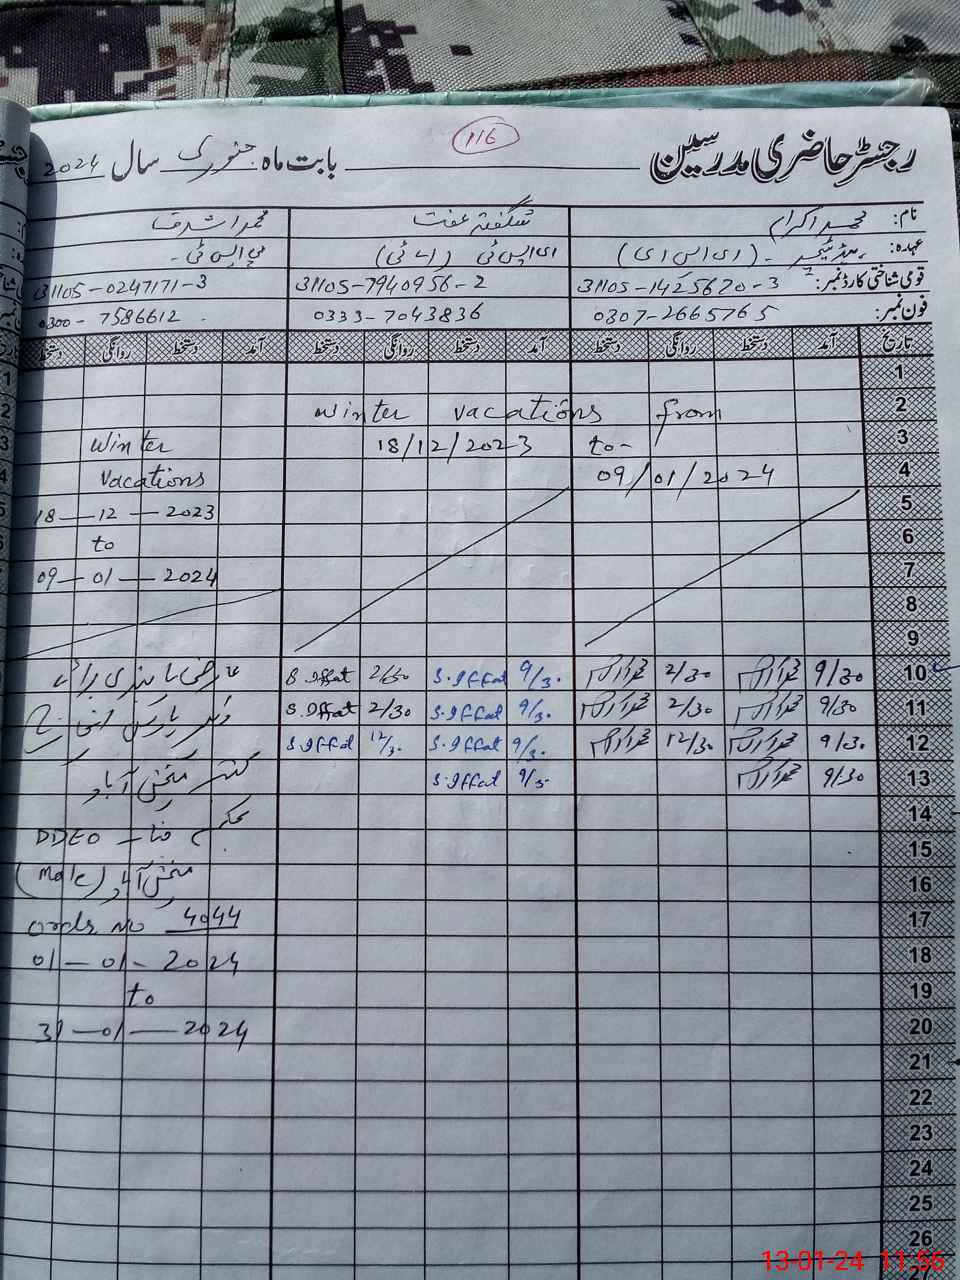 116
رجسٹر حاضری مدرسین بابت ماہ جنوری سال 2024
نام: محمد اکرام شگفتہ عفت محمد اشرف
عہدہ: ہیڈ ٹیچر - (ای ایس ای) ای ایس ٹی (اے ٹی) پی ایس ٹی -
قومی شناختی کارڈ نمبر: 31105-1425620-3 31105-7940956-2 31105-0247171-3
فون نمبر: 0307-2665765 0333-7043836 0300-7586612
تاریخ آمد دستخط روانگی دستخط آمد دستخط روانگی دستخط آمد دستخط روانگی دستخط
1
2
3
4
5
6
7
8
9
winter vacations from
18/12/2023 to-
09/01/2024
winter
vacations
18-12-2023
to
09-01-2024
10 9/30 محمد اکرام 2/30 محمد اکرام 9/30 S.Iffat 2/30 S.Iffat
11 9/30 محمد اکرام 2/30 محمد اکرام 9/30 S.Iffat 2/30 S.Iffat
12 9/30 محمد اکرام 12/30 محمد اکرام 9/30 S.Iffat 12/30 S.Iffat
13 9/30 محمد اکرام 9/30 S.Iffat
عارضی پابندی برائے
DDEO
(Male)
order no 4044
01-01-2024
to
31-01-2024
14
15
16
17
18
19
20
21
22
23
24
25
26
27
13-01-24 11:56